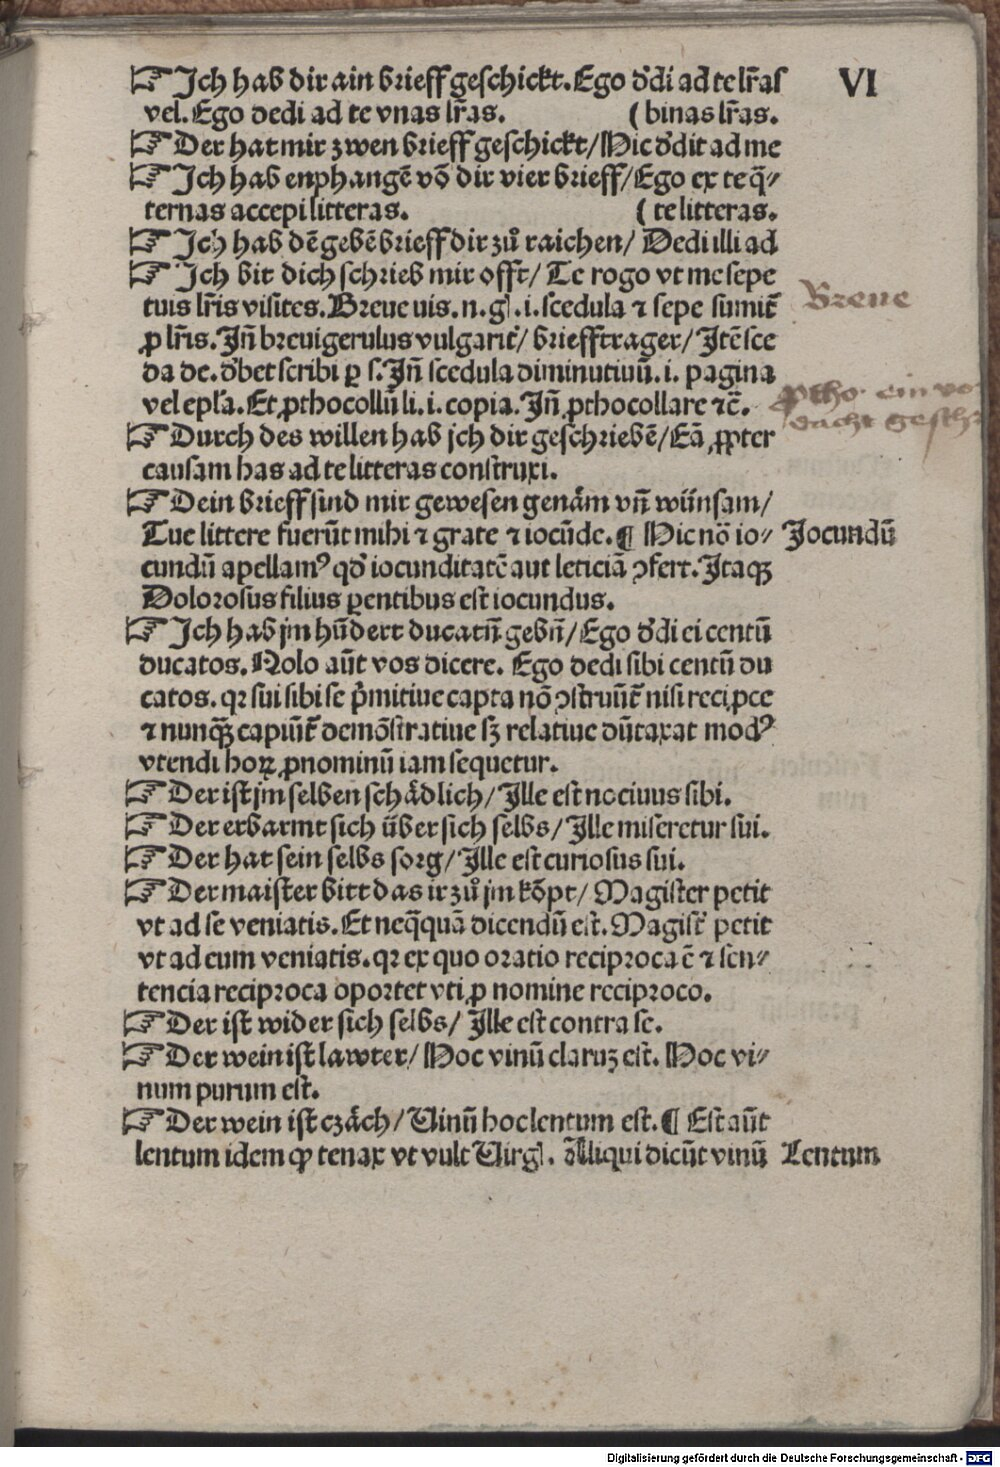 VI
☞ Ich hab dir ain brieff geschickt. Ego dẽdi ad te lr̃as
vel. Ego dedi ad te vnas lr̃as. ( binas lr̃as.
☞ Der hat mir zwen brieff geschickt/ Hic dẽdit ad me
☞ Ich hab enphangẽ võ dir vier brieff/ Ego ex te q̃⸗
ternas accepi litteras. ( te litteras.
☞ Ich hab dẽ gebẽ brieff dir zů raichen/ Dedi illi ad
☞ Ich bit dich schrieb mir offt/ Te rogo vt me sepe
tuis lr̃is visites. Breue uis. n. gl̃. i. scedula ⁊ sepe sumit̃
Breue
ꝓ lr̃is. Iñ breuigerulus vulgarit̃/ brieffträger/ Itẽ sce
da de. dẽbet scribi ꝑ s. Iñ scedula diminutiuũ. i. pagina
vel epl̃a. Et ꝓthocollũ li. i. copia. Iñ ꝓthocollare ⁊cẽ.
ꝓtho ein vo
☞ Durch des willen hab ich dir geschriebẽ/ Eã ꝓpter
causam has ad te litteras construxi.
☞ Dein brieff sind mir gewesen genäm vñ wünsam/
Tue littere fuerũt mihi ⁊ grate ⁊ iocũde. ¶ Hic nõ io⸗
Iocundũ
cundũ apellamꝰ qđ iocunditatẽ aut leticiã ꝯfert. Itaqꝫ
Dolorosus filius ꝑentibus est iocundus.
☞ Ich hab jm hũdert ducatñ gebñ/ Ego dẽdi ei centũ
ducatos. Nolo aũt vos dicere. Ego dedi sibi centũ du
catos. qꝛ sui sibi se p̃mitiue capta nõ ꝯstruũt̃ nisi reciꝓce
⁊ nunqꝫ capiũt̃ demõstratiue sꝫ relatiue dũtaxat modꝰ
vtendi hoꝝ ꝓnominũ iam sequetur.
☞ Der ist jm selben schädlich/ Ille est nociuus sibi.
☞ Der erbarmt sich über sich selbs/ Ille miseretur sui.
☞ Der hat sein selbs sorg/ Ille est curiosus sui.
☞ Der maister bitt das ir zů jm kõpt/ Magister petit
vt ad se veniatis. Et neq̃quã dicendũ est. Magist̃ petit
vt ad eum veniatis. qꝛ ex quo oratio reciproca ẽ ⁊ sen⸗
tencia reciproca oportet vti ꝓ nomine reciproco.
☞ Der ist wider sich selbs/ Ille est contra se.
☞ Der wein ist lawter/ Hoc vinũ claruꝫ est. Hoc vi⸗
num purum est.
☞ Der wein ist czäch/ Vinũ hoc lentum est. ¶ Est aũt
lentum idem qꝫ tenax vt vult Virgl̃. Aliqui dicũt vinũ
Lentum
Digitalisierung gefördert durch die Deutsche Forschungsgemeinschaft - DFG